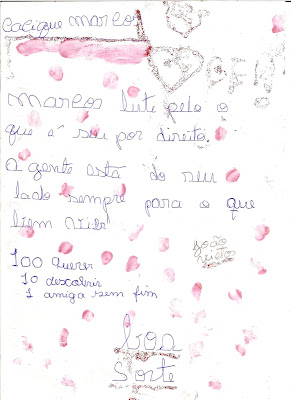 Cacique Marcos
Marcos lute pelo o
que é seu por direito
a gente está do seu
lado sempre para o que
João
100 querer
10 descobrir
1 amiga sem fim
boa
sorte